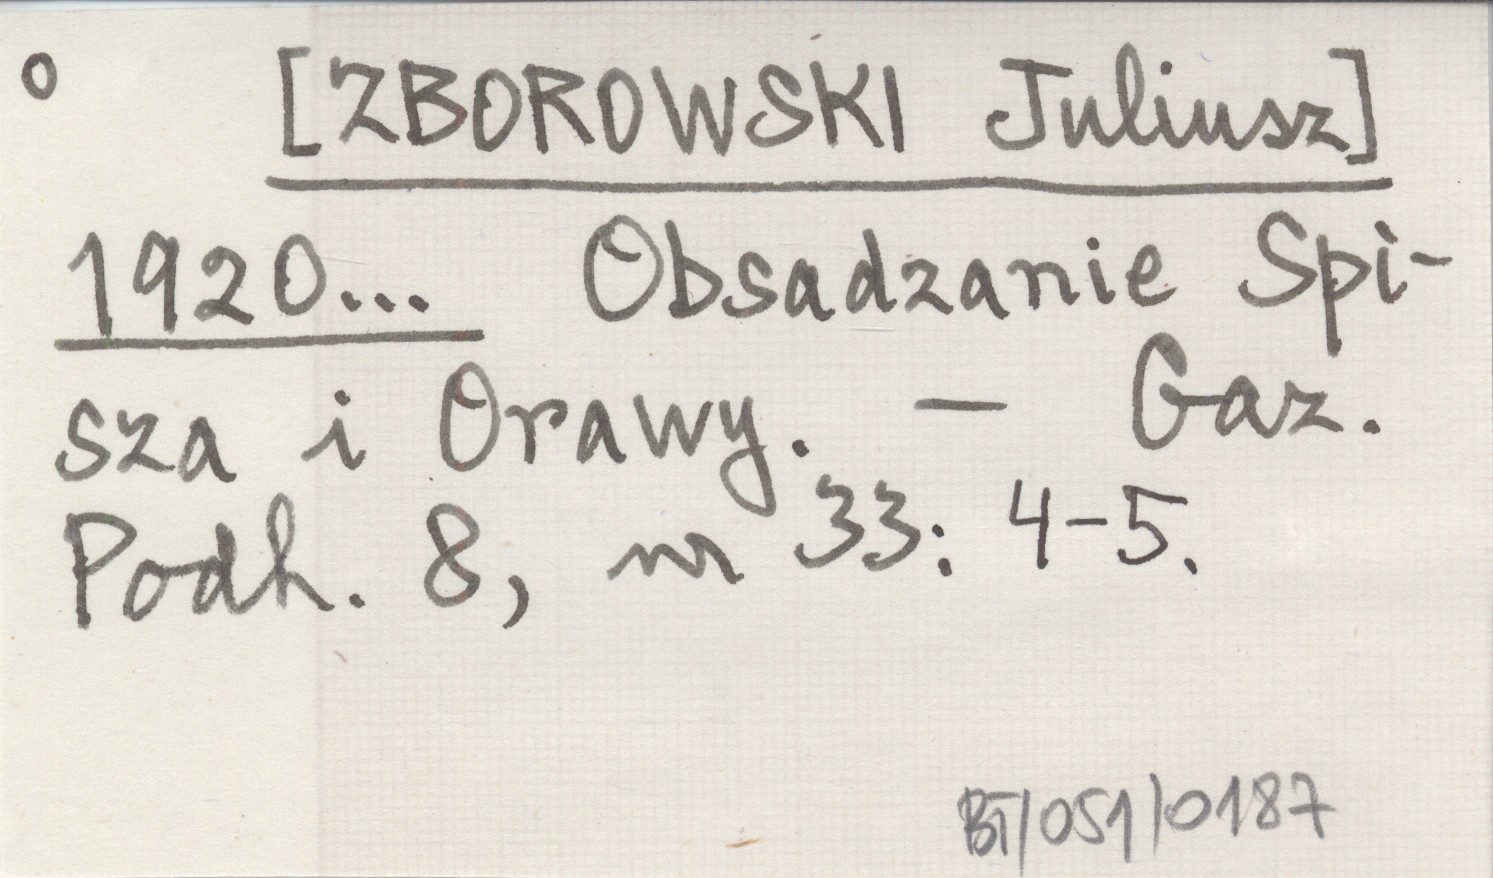 o [ZBOROWSKI Juliusz]
1920... Obsadzanie Spi-
sza i Orawy. — Gaz.
Podh. 8, nr 33: 4-5.
BT/051/0187